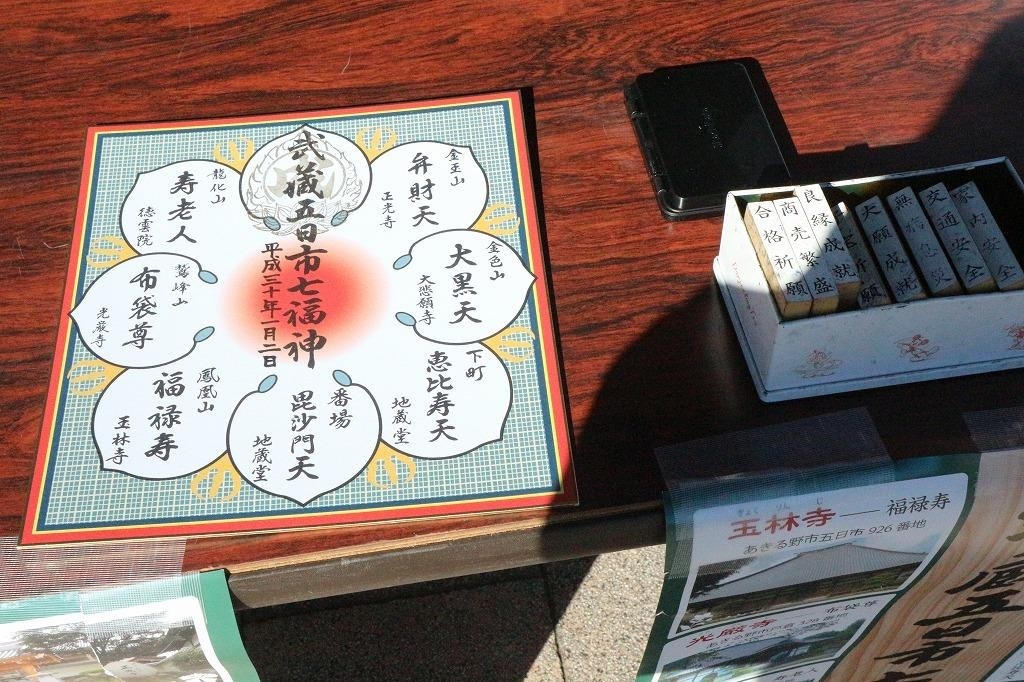 武蔵五日市七福神
平成三十年一月二日
金玉山
弁財天
正光寺
金色山
大黒天
大悲願寺
下町
恵比寿天
地蔵堂
番場
毘沙門天
地蔵堂
鳳凰山
福禄寿
玉林寺
鷲峰山
布袋尊
光厳寺
龍化山
寿老人
徳雲院
合格祈願
商売繁盛
良縁成就
大願成就
無病息災
交通安全
家内安全
ぎょく りん じ
玉林寺──福禄寿
あきる野市五日市 926 番地
布袋尊
光厳寺
あきる野市戸倉 328 番地
寿老人